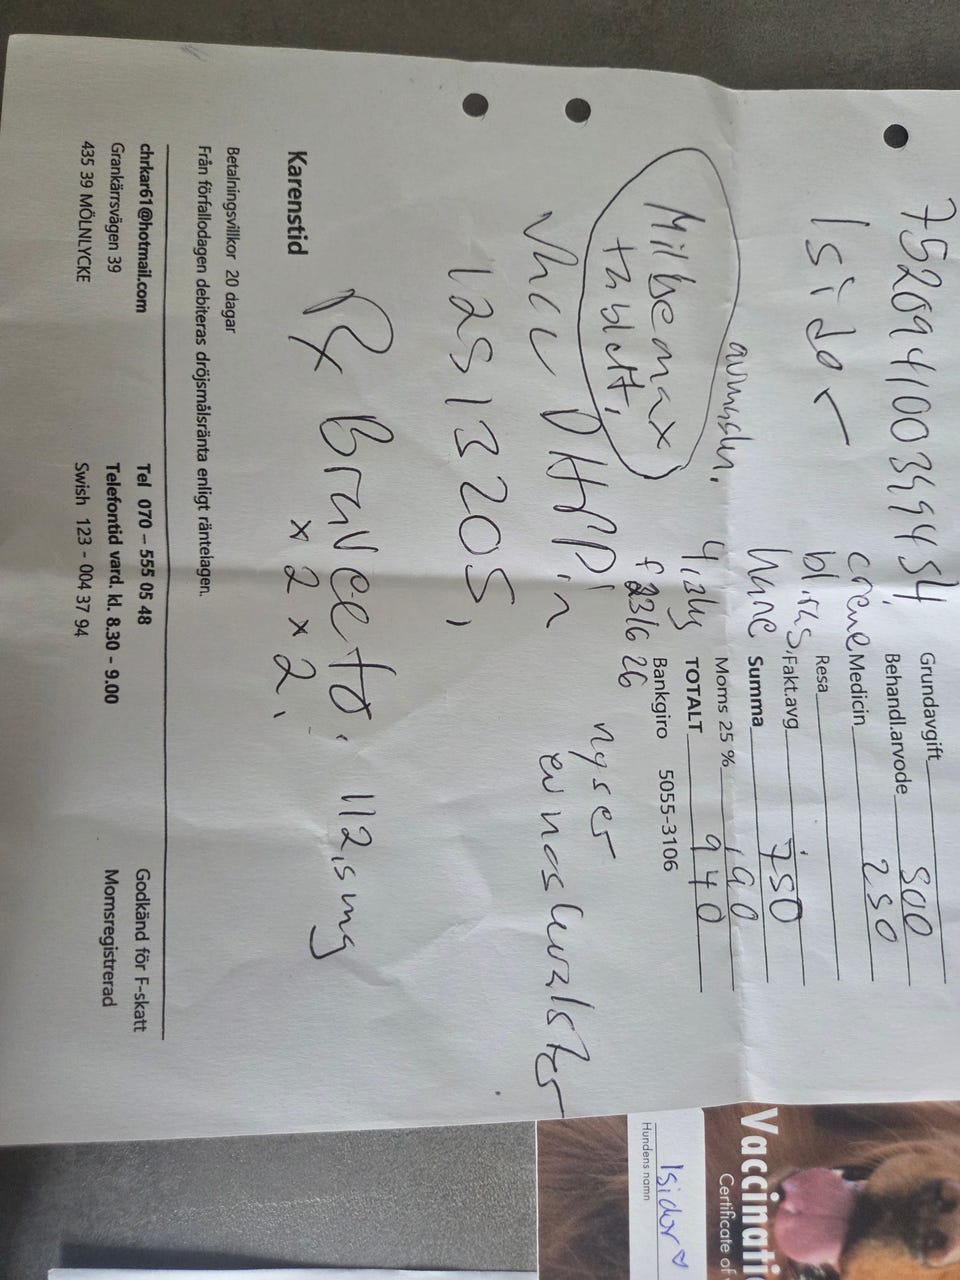 752094100399454
Isidor
creme
hane
Grundavgift 500
Behandl.arvode 250
Medicin
Resa
Fakt.avg
Summa 750
Moms 25 % 190
TOTALT 940
Bankgiro 5055-3106
avmaskn.
Milbemax
tablett,
f 23/6 26
nyser
Vacc DHPPi n
las 13205,
Karenstid
Rx Bravecto. 112,5 mg
x 2 x 2.
Betalningsvillkor 20 dagar
Från förfallodagen debiteras dröjsmålsränta enligt räntelagen.
chrkar61@hotmail.com Tel 070 – 555 05 48 Godkänd för F-skatt
Grankärrsvägen 39 Telefontid vard. kl. 8.30 - 9.00 Momsregistrerad
435 39 MÖLNLYCKE Swish 123 - 004 37 94
Certificate of
Isidor
Hundens namn